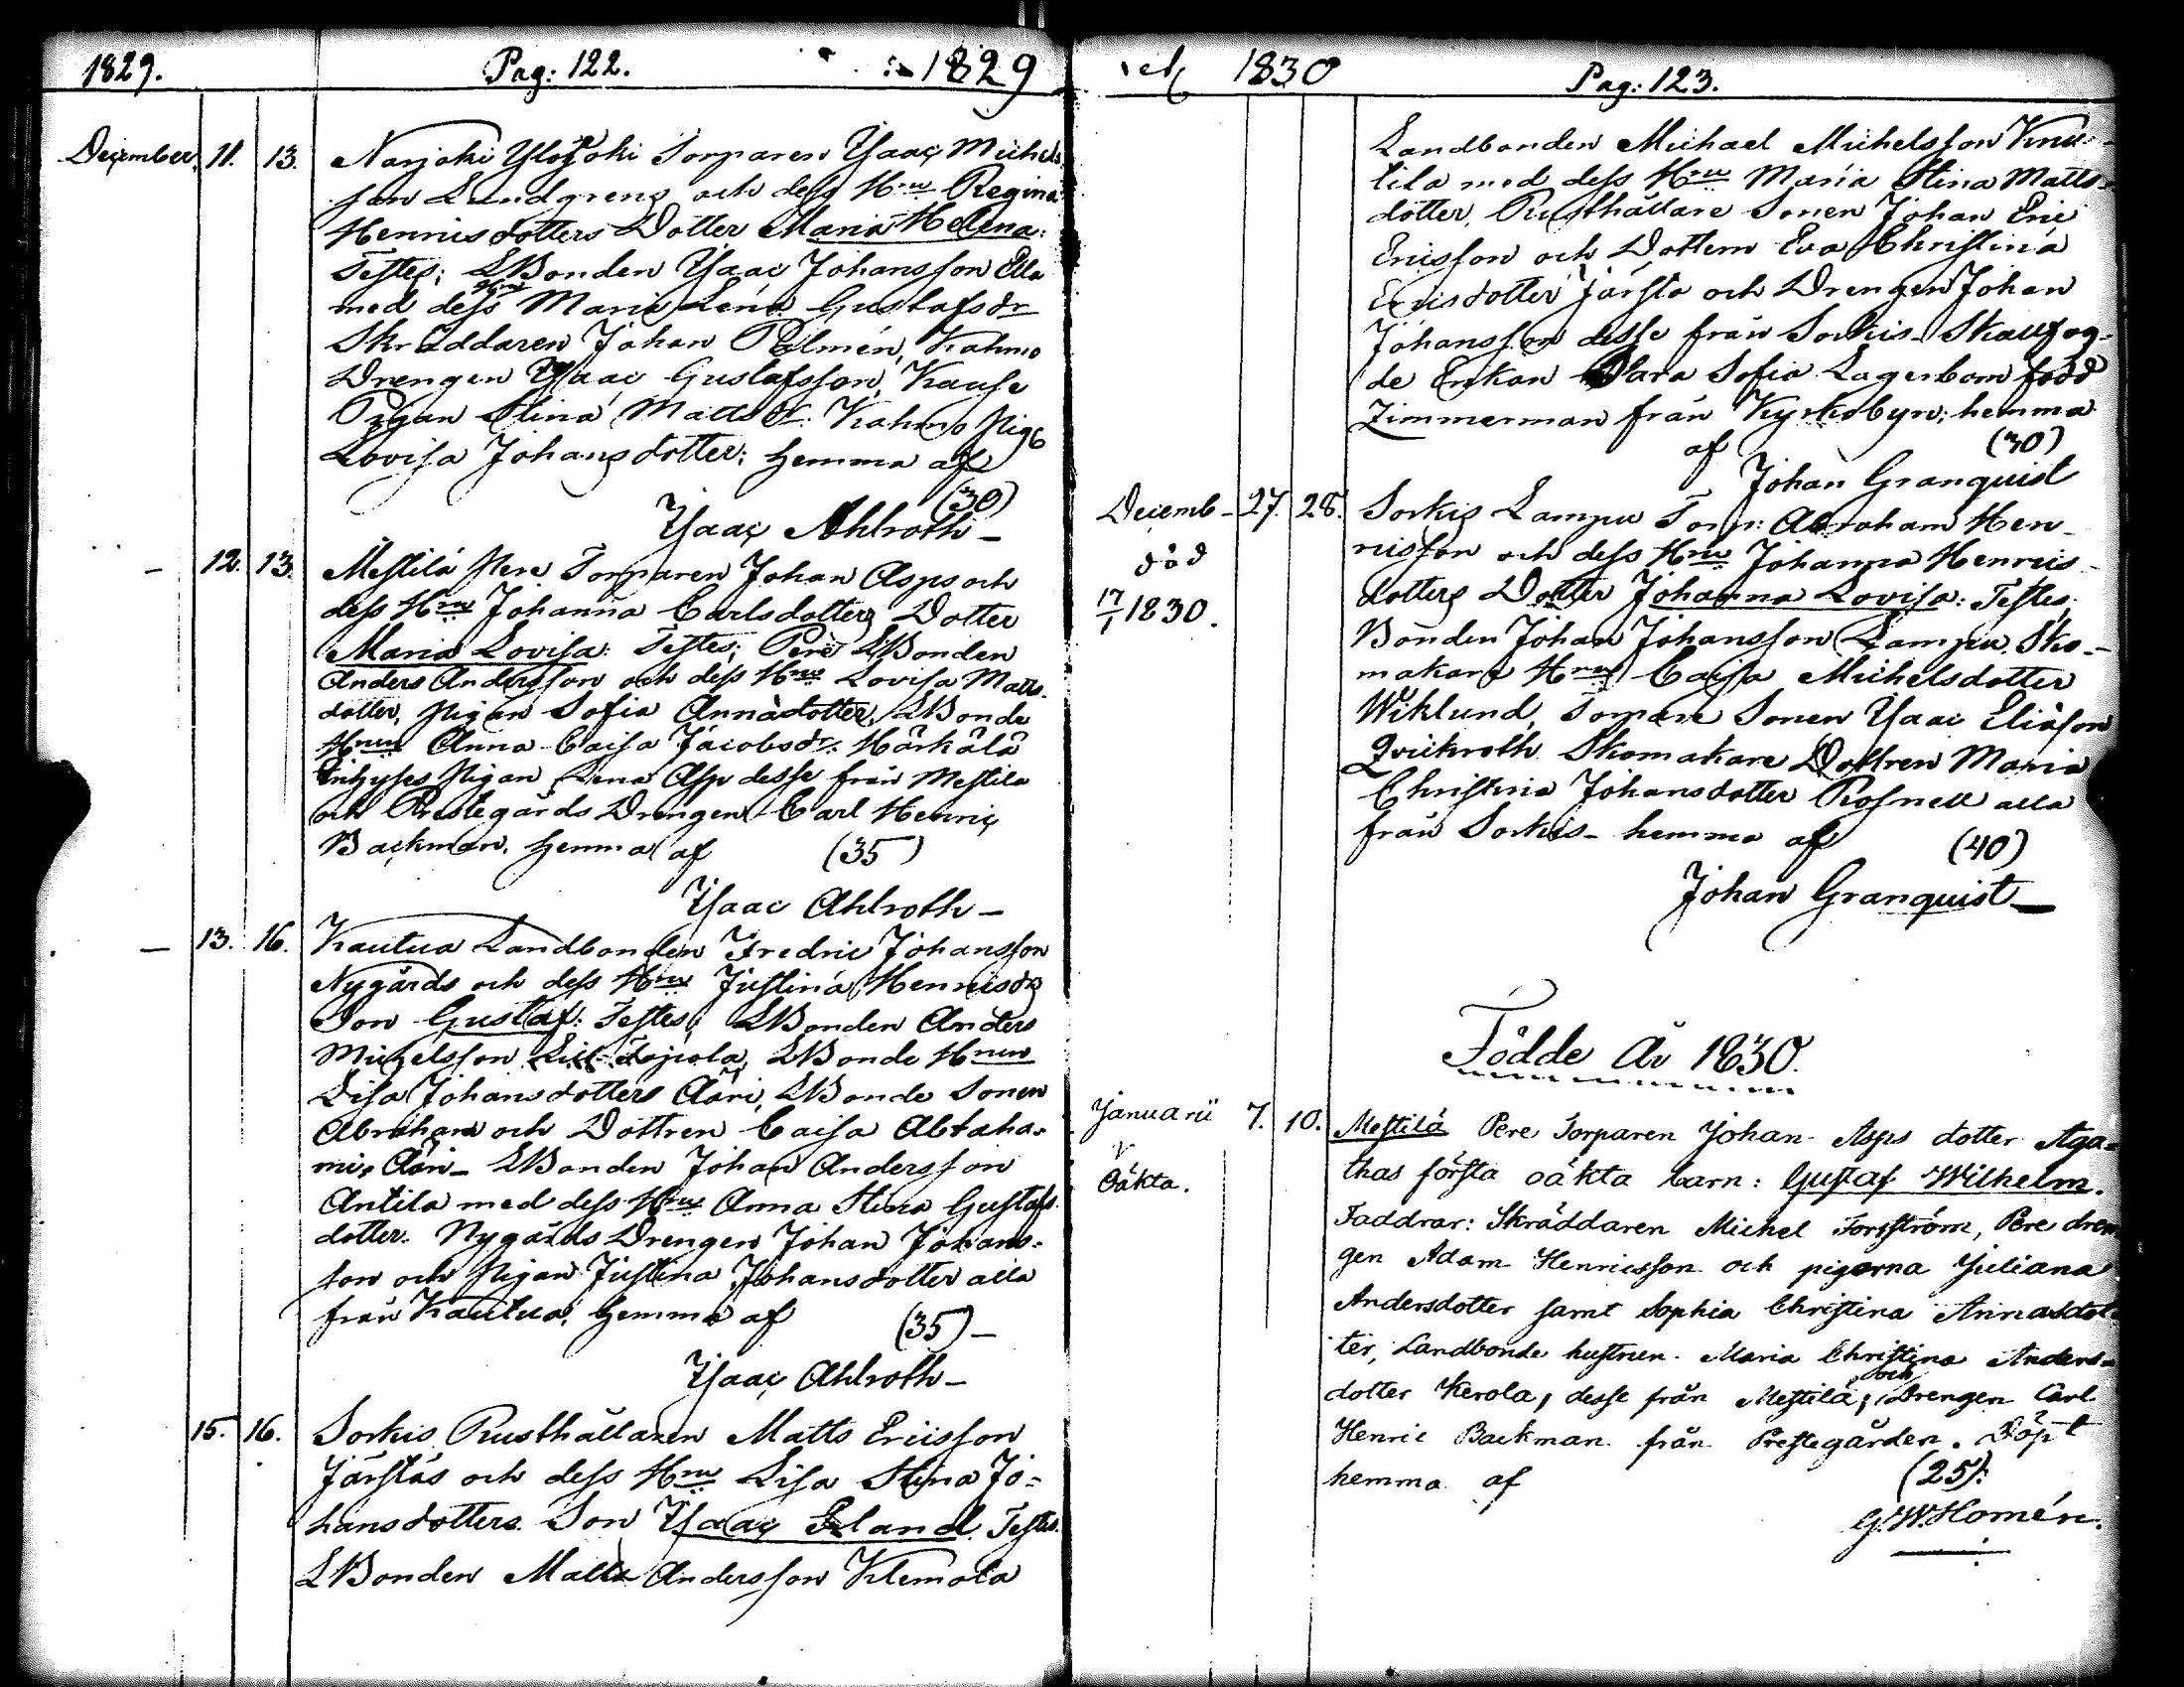 1829. Pag: 122. 1829
December 11. 13. Narjoki Ylojoki Torparen Ysaac Michels
son Lundgrens och dess Hru Regina
Henricsdotters Dotter Maria Helena:
Testes; LBonden Ysaac Johansson Eila
med dess Hru Maria Lena Gustafsdr
Skräddaren Johan Palmén, Kahmo
Drengen Ysaac Gustafsson, Kause
Pigan Stina Mattsdr: Kahmo Pig
Lovisa Johansdotter; hemma af
(30)
Ysaac Ahlroth –
– 12. 13. Mestilä Pere Torparen Johan Asps och
dess Hru Johanna Carlsdotters Dotter
Maria Lovisa: Testes; Pere LBonden
Anders Andersson och dess Hru Lovisa Matts
dotter, Pigan Sofia Annädotter, LBonde
Hrun Anna Caisa Jacobsdr: Härkälä
Inhyses Pigan Lena Asp desse från Mestila
och Prestegårds Drengen Carl Henric
Backman. hemma af (35)
Ysaac Ahlroth –
– 13. 16. Kautua Landbonden Fredric Johansson
Nygårds och dess Hru Justina Henricsdrs
Son Gustaf: Testes; LBonden Anders
Michelsson LBonde Hrun
Lisa Johansdotters Aäri, LBonde Sonen
Abraham och Dottren Caisa Abraha-
mis Aäri – LBonden Johan Andersson
Antila med dess Hru Anna Stina Gustafs
dotter. Nygårds Drengen Johan Johans-
son och Pigan Justina Johansdotter alla
från Kautua, hemma af (35) –
Ysaac Ahlroth –
15. 16. Sorkis Rusthållaren Matts Ericsson
Järstäs och dess Hru Lisa Stina Jo-
hansdotters Son Ysaac Erland. Testes.
LBonden Matts Andersson Klemola
1830 Pag: 123.
Landbonden Michael Michelsson Knu-
tila med dess Hru Maria Stina Matts-
dotter, Rusthållare Sonen Johan Eric
Ericsson och Dottern Eva Christina
Ericsdotter Järsta och Drengen Johan
Johansson desse från Sorkis – Skallfog-
de Enkan Clara Sofia Lagerbom född
Zimmerman från Kyrkobyn; hemma
af (30)
Johan Granquist
Decemb – 27. 28. Sorkis Lampu Torp: Abraham Hen-
ricsson och dess Hru Johanna Henrics-
död
dotters Dotter Johanna Lovisa: Testes.
17/1 1830.
Bonden Johan Johansson Lampu. Sko-
makare Hrun Caisa Michelsdotter
Wiklund, Torpare Sonen Ysaac Eliasson
Qvickroth Skomakare Dottren Maria
Christina Johansdotter Rosnell alla
från Sorkis – hemma af (40)
Johan Granquist –
Födde År 1830.
Januarii 7. 10. Mestilä Pere Torparen Johan Asps dotter Aga-
thas första oäkta barn: Gustaf Wilhelm.
Oäkta.
Faddrar: Skräddaren Michel Forsström, Pere dren
gen Adam Henricsson och pigorna Juliana
Andersdotter samt Sophia Christina Annasdot-
ter, Landbonde hustrun Maria Christina Anders-
dotter Kerola, desse från Mestilä, och Drengen Carl
Henric Backman från Prestegården. Döpt
hemma af (25):
G. W. Homén.